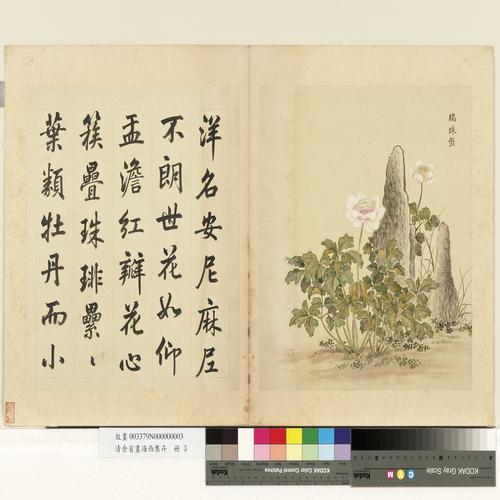 瑞珠盤
洋名安尼麻尼
不朗世花如仰
盂澹紅瓣花心
簇疊珠琲纍〻
葉類牡丹而小
故畫 003379N000000003
清余省畫海西集卉 冊 3
KODAK Color Control Patches
KODAK Gray Scale
C M Y